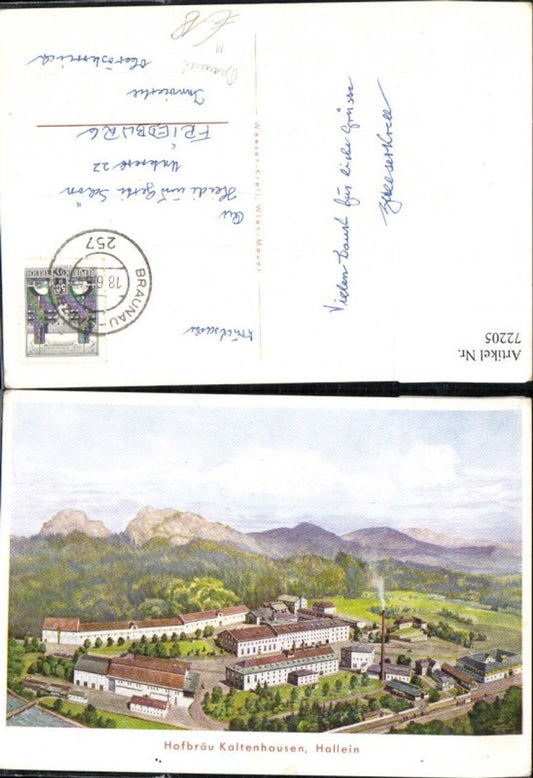 Artikel Nr.
72205
Drucksache
BRAUNAU
257
18.6.
REPUBLIK ÖSTERREICH
An
Heidi und Gerti Schön
22
FRIEDBURG
Innviertel
Oberösterreich
Vielen Dank für liebe Grüsse
Wiesner-Krell, Wien-Mauer
Hofbräu Kaltenhausen, Hallein